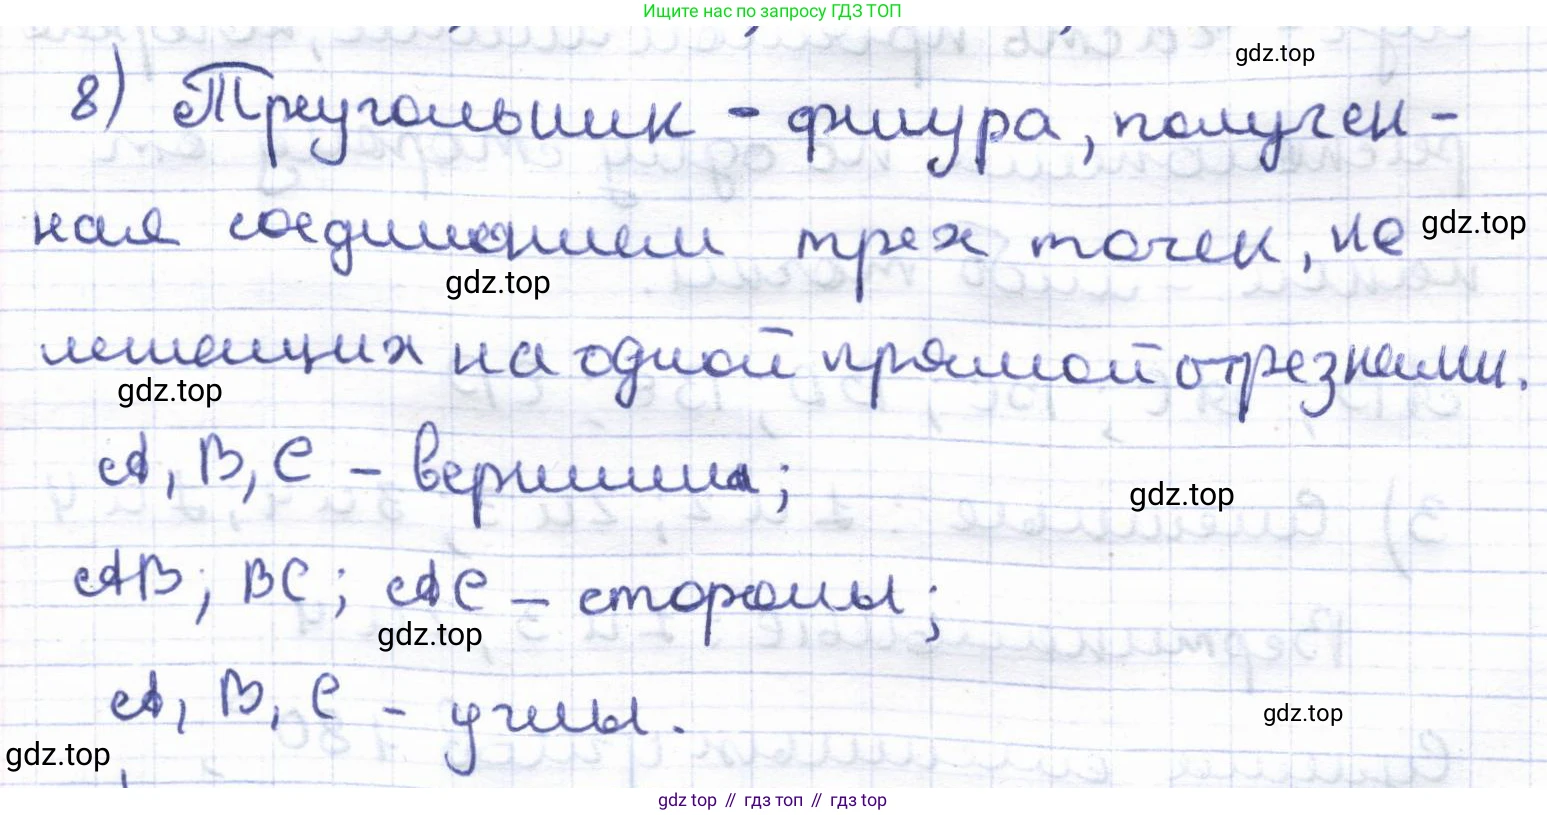 Ищите нас по запросу ГДЗ ТОП
gdz.top
8) Треугольник - фигура, получен-
ная соединением трех точек, не
gdz.top
gdz.top
лежащих на одной прямой отрезками.
gdz.top
A, B, C – вершины;
gdz.top
AB; BC; AC – стороны;
gdz.top
A, B, C - углы.
gdz.top
gdz.top
gdz top // гдз топ // gdz top